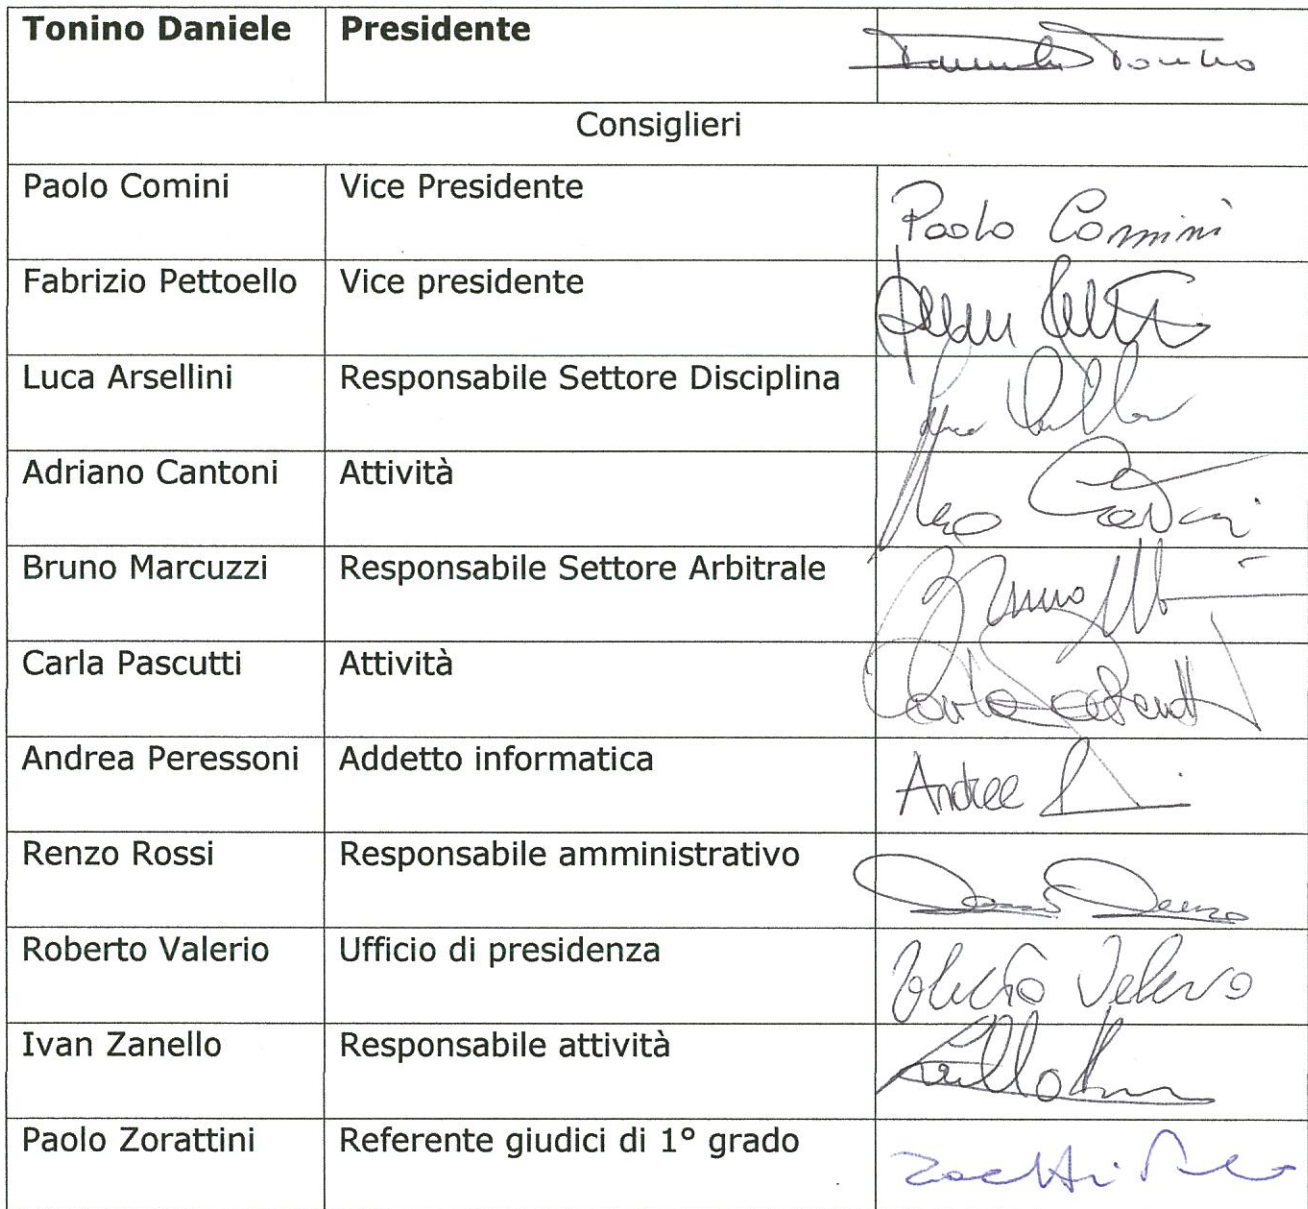 Tonino Daniele Presidente
Consiglieri
Paolo Comini Vice Presidente Paolo Comini
Fabrizio Pettoello Vice presidente
Luca Arsellini Responsabile Settore Disciplina
Adriano Cantoni Attività
Bruno Marcuzzi Responsabile Settore Arbitrale Bruno
Carla Pascutti Attività Carla
Andrea Peressoni Addetto informatica Andrea
Renzo Rossi Responsabile amministrativo
Roberto Valerio Ufficio di presidenza
Ivan Zanello Responsabile attività
Paolo Zorattini Referente giudici di 1° grado